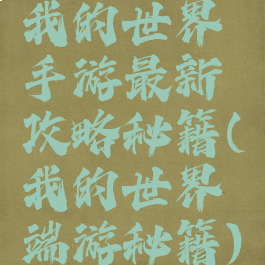 我的世界
手游最新
攻略秘籍(
我的世界
端游秘籍)